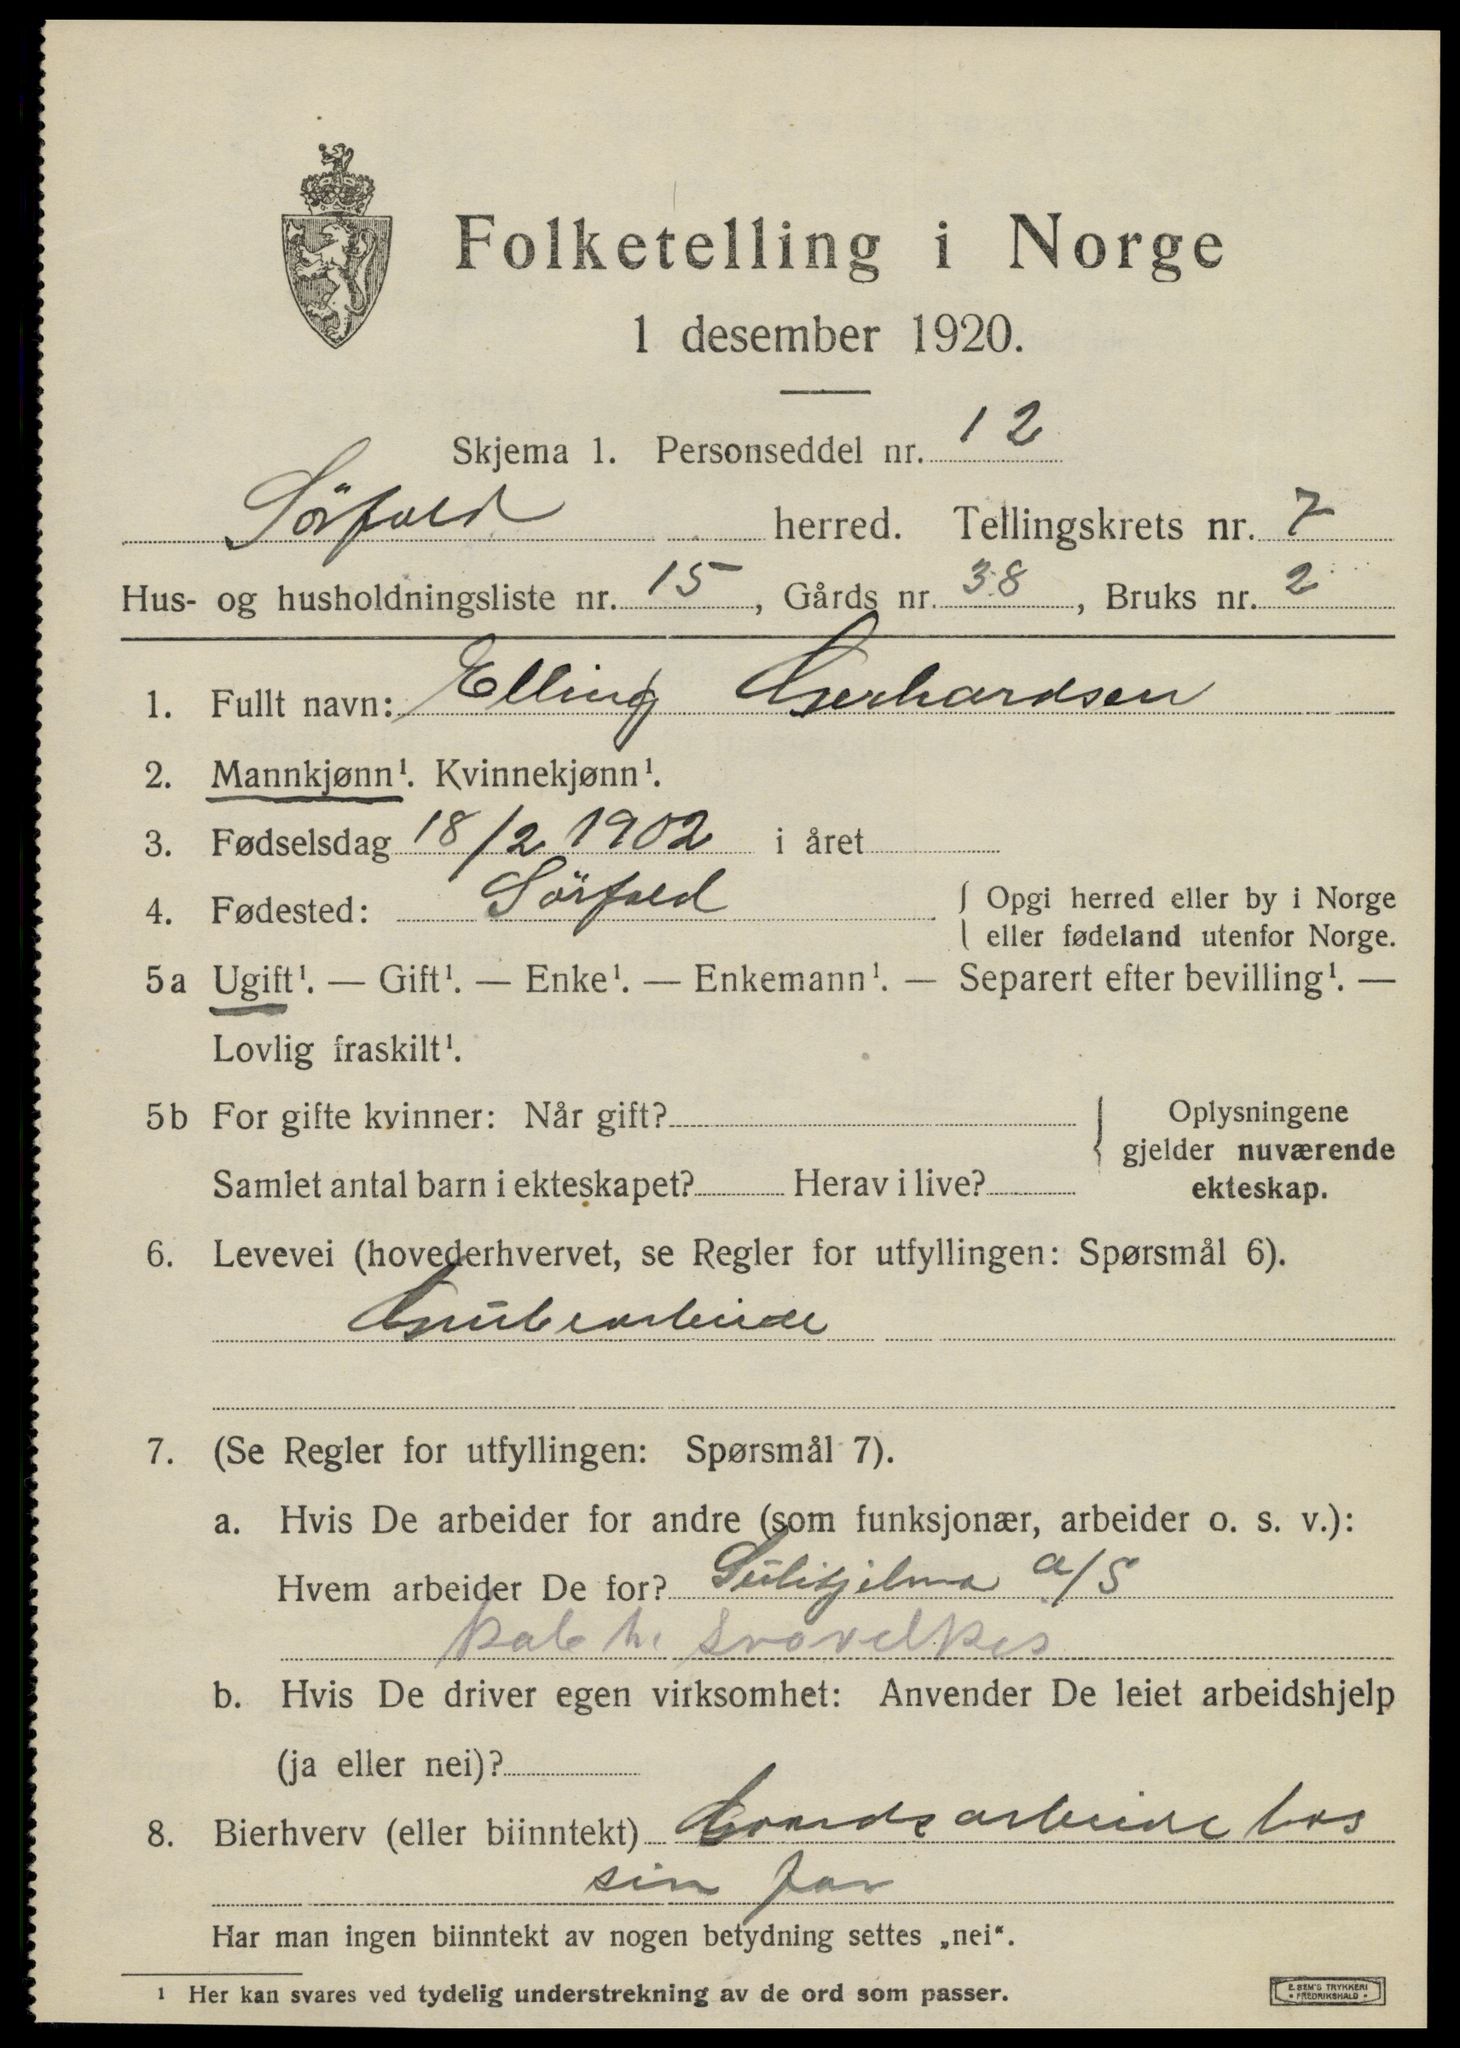 Folketelling i Norge
1 desember 1920.
Skjema 1. Personseddel nr. 12
Sörfold herred. Tellingskrets nr. 7
Hus- og husholdningsliste nr. 15, Gårds nr. 38, Bruks nr. 2
1. Fullt navn: Elling Gerhardsen
2. Mannkjønn¹. Kvinnekjønn¹.
3. Fødselsdag 18/2 1902 i året
4. Fødested: Sörfold { Opgi herred eller by i Norge
eller fødeland utenfor Norge.
5a Ugift¹. — Gift¹. — Enke¹. — Enkemann¹. — Separert efter bevilling¹. —
Lovlig fraskilt¹.
5b For gifte kvinner: Når gift? { Oplysningene
gjelder nuværende
Samlet antal barn i ekteskapet? Herav i live? ekteskap.
6. Levevei (hovederhvervet, se Regler for utfyllingen: Spørsmål 6).
Grubearbeide
7. (Se Regler for utfyllingen: Spørsmål 7).
a. Hvis De arbeider for andre (som funksjonær, arbeider o. s. v.):
Hvem arbeider De for? Sulitjelma a/S
svovelkis
b. Hvis De driver egen virksomhet: Anvender De leiet arbeidshjelp
(ja eller nei)?
8. Bierhverv (eller biinntekt) Gaardsarbeide hos
sin far
Har man ingen biinntekt av nogen betydning settes „nei“.
¹ Her kan svares ved tydelig understrekning av de ord som passer.
E. SEM'S TRYKKERI
• FREDRIKSHALD •